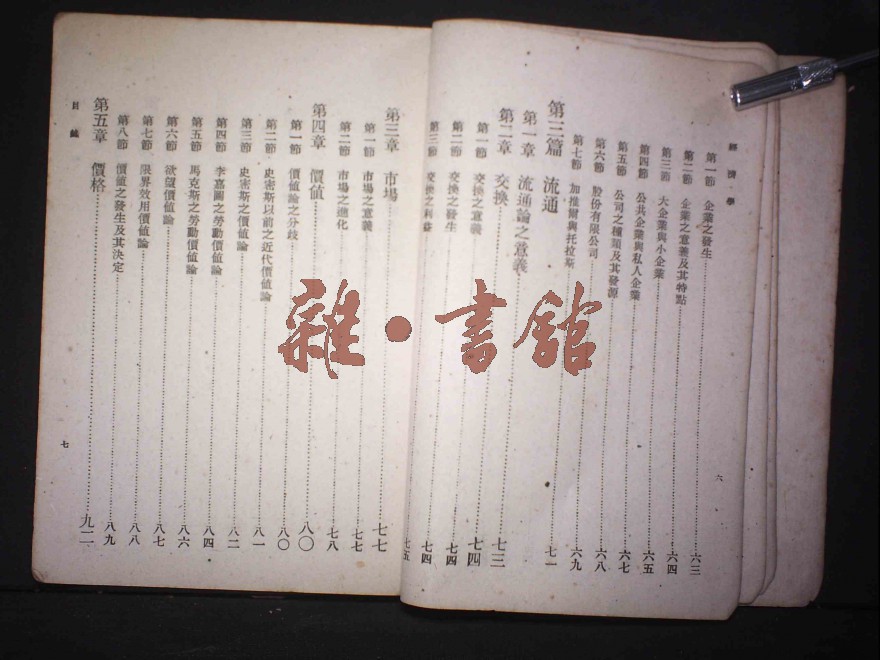 經濟學
第一節 企業之發生……六三
第二節 企業之意義及其特點……六四
第三節 大企業與小企業……六四
第四節 公共企業與私人企業……六五
第五節 公司之種類及其發源……六七
第六節 股份有限公司……六八
第七節 加推爾與托拉斯……六九
第三篇 流通
第一章 流通論之意義……七一
第二章 交換……七三
第一節 交換之意義……七四
第二節 交換之發生……七四
第三節 交換之利益……七四
七五
六
第三章 市場……七七
第一節 市場之意義……七七
第二節 市場之進化……七八
第四章 價值……八〇
第一節 價值論之分歧……八〇
第二節 史密斯以前之近代價值論……八一
第三節 史密斯之價值論……八二
第四節 李嘉圖之勞動價值論……八四
第五節 馬克斯之勞動價值論……八六
第六節 欲望價值論……八七
第七節 限界效用價值論……八八
第八節 價值之發生及其決定……八九
第五章 價格……九二
目錄
七
雜·書館